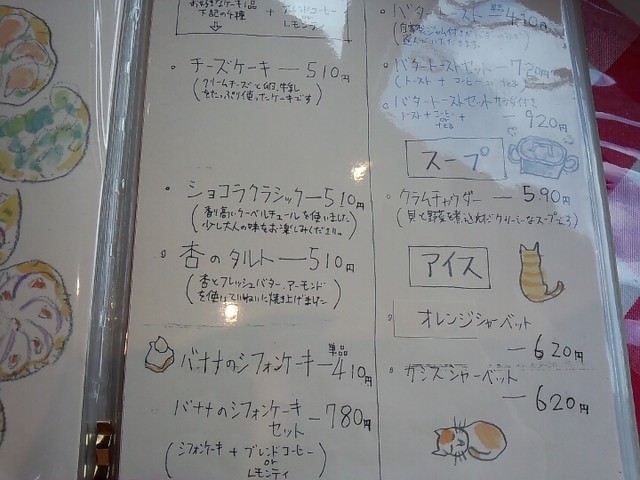 お好きなケーキ1品 + ブレンドコーヒー
下記の4種 or
レモンティ
・チーズケーキ — 510円
(クリームチーズと卵、牛乳
をたっぷり使ったケーキです)
・ショコラクラシック — 510円
(香り高いクーベルチュールを使いました
少し大人の味をお楽しみください。)
・杏のタルト — 510円
(杏とフレッシュバター、アーモンド
を使ってていねいに焼き上げました)
バナナのシフォンケーキ — 単品 410円
バナナのシフォンケーキ
セット — 780円
(シフォンケーキ + ブレンドコーヒー
or
レモンティ)
・バタートースト — 単品 410円
・バタートーストセット — 720円
(トースト + コーヒー or tea)
・バタートーストセット サラダ付き
トースト + コーヒー or tea +
— 920円
スープ
・クラムチャウダー — 590円
(貝と野菜を煮込んだクリーミーなスープ)
アイス
・オレンジシャーベット
— 620円
・カシスシャーベット
— 620円